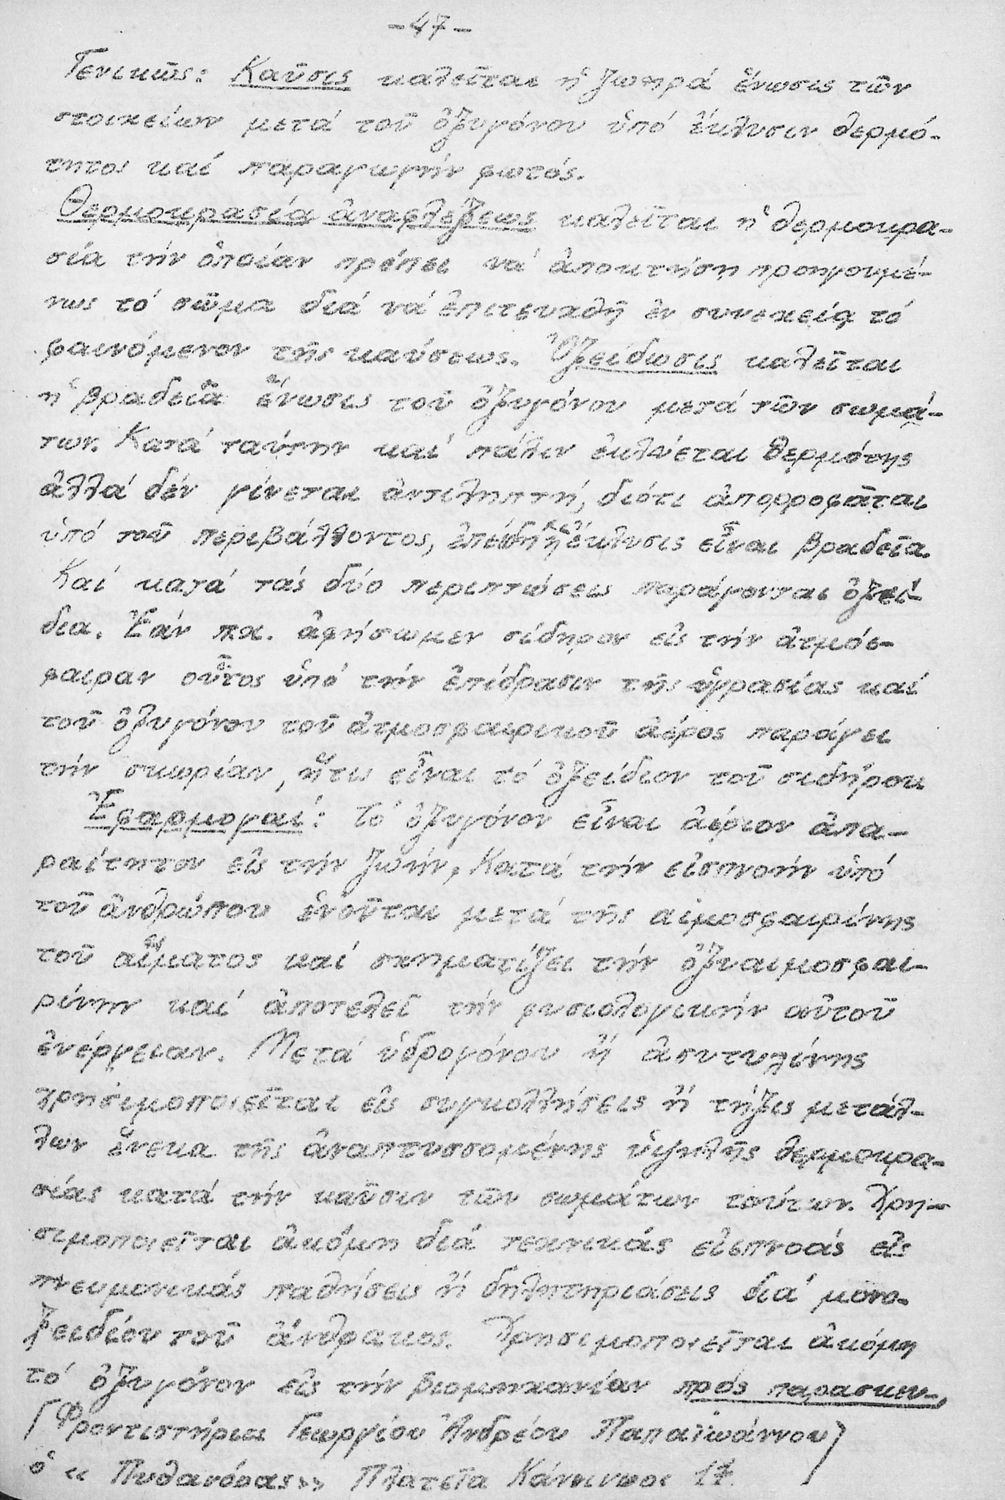 -47-
Γενικῶς: Καῦσις καλεῖται ἡ ζωηρά ἕνωσις τῶν
στοιχείων μετά τοῦ ὀξυγόνου ὑπό ἔκλυσιν θερμό-
τητος καί παραγωγήν φωτός.
Θερμοκρασία ἀναφλέξεως καλεῖται ἡ θερμοκρα-
σία τήν ὁποίαν πρέπει νά ἀποκτήση προηγουμέ-
νως τό σῶμα διά νά ἐπιτευχθῆ ἐν συνεχεία τό
φαινόμενον τῆς καύσεως. Ὀξείδωσις καλεῖται
ἡ βραδεῖα ἕνωσις τοῦ ὀξυγόνου μετά τῶν σωμά-
των. Κατά ταύτην καί πάλιν ἐκλύεται θερμότης
ἀλλά δέν γίνεται ἀντιληπτή, διότι ἀπορροφᾶται
ὑπό τοῦ περιβάλλοντος, ἐπειδή ἡ ἔκλυσις εἶναι βραδεῖα.
Καί κατά τάς δύο περιπτώσεις παράγονται ὀξεί-
δια. Ἐάν π.χ. ἀφήσωμεν σίδηρον εἰς τήν ἀτμόσ-
φαιραν οὗτος ὑπό τήν ἐπίδρασιν τῆς ὑγρασίας καί
τοῦ ὀξυγόνου τοῦ ἀτμοσφαιρικοῦ ἀέρος παράγει
τήν σκωρίαν, ἥτις εἶναι τό ὀξείδιον τοῦ σιδήρου
Ἐφαρμογαί: Τό ὀξυγόνον εἶναι ἀέριον ἀπα-
ραίτητον εἰς τήν ζωήν, Κατά τήν εἰσπνοήν ὑπό
τοῦ ἀνθρώπου ἑνοῦται μετά τῆς αἱμοσφαιρίνης
τοῦ αἵματος καί σχηματίζει τήν ὀξυαιμοσφαι-
ρίνην καί ἀποτελεῖ τήν φυσιολογικήν αὐτοῦ
ἐνέργειαν. Μετά ὑδρογόνου ἤ ἀσυτυλίνης
χρησιμοποιεῖται εἰς συγκολλήσεις ἤ τήξις μετάλ-
λων ἕνεκα τῆς ἀναπτυσσομένης ὑψηλῆς θερμοκρα-
σίας κατά τήν καῦσιν τῶν σωμάτων τούτων. Χρη-
σιμοποιεῖται ἀκόμη διά τεχνικάς εἰσπνοάς εἰς
πνευμονικάς παθήσεις ἤ δηλητηριάσεις διά μονο-
ξειδίου τοῦ ἄνθρακος. Χρησιμοποιεῖται ἀκόμη
τό ὀξυγόνον εἰς τήν βιομηχανίαν πρός παρασκευ-
(Φροντιστήρια Γεωργίου Ἀνδρέου Παπαϊωάννου)
ὁ « Πυθαγόρας» Πλατεῖα Κάνιγγος 17